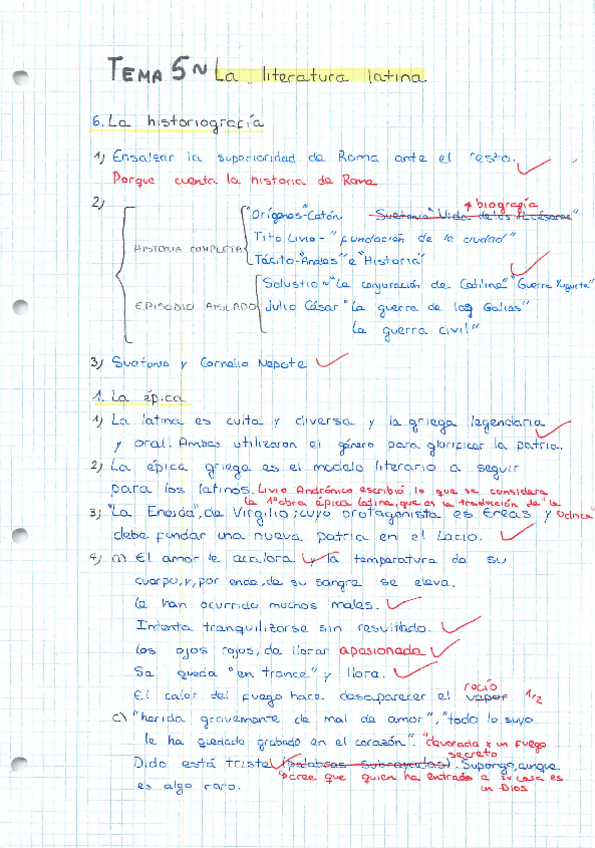 TEMA 5~ La literatura latina
6. La historiografía
1) Ensalzar la superioridad de Roma ante el resto.
Porque cuenta la historia de Roma
2)
biografía
"Orígenes"-Catón Suetonio "Vida de los 12 césares"
Tito Livio - "Fundación de la ciudad"
HISTORIA COMPLETA
Tácito-"Anales" e "Historia"
Salustio ~ "La conjuración de Catilina" "Guerra Yugurta"
EPISODIO AISLADO Julio César "La guerra de las Galias"
La guerra civil"
3) Suetonio y Cornelio Nepote
1. La épica
1) La latina es culta y diversa y la griega legendaria
y oral. Ambas utilizaron el género para glorificar la patria.
2) La épica griega es el modelo literario a seguir
para los latinos. Livio Andrónico escribió lo que se considera
la 1ª obra épica latina, que es la traducción de la
3) "La Eneida", de Virgilio; cuyo protagonista es Eneas y "Odisea"
debe fundar una nueva patria en el Lacio.
4) a) El amor le acalora y la temperatura de su
cuerpo, y, por ende, de su sangre se eleva.
Le han ocurrido muchos males.
Intenta tranquilizarse sin resultado.
Los ojos rojos, de llorar apasionada
Se queda "en trance" y llora.
rocío
El calor del fuego hace desaparecer el vapor 1/2
c) "herida gravemente de mal de amor", "todo lo suyo
le ha quedado grabado en el corazón". "devorada x un fuego
secreto
Dido está triste (palabras subrayadas). Supongo, aunque
cree que quien ha entrado a su casa es
es algo raro. un Dios